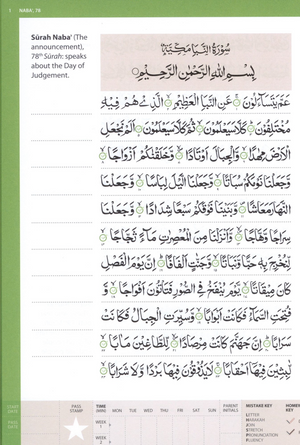 1
NABA', 78
Sūrah Naba' (The
announcement),
78th Sūrah: speaks
about the Day of
Judgement.
سُورَةُ النَّبَإِ مَكِّيَّةٌ
بِسْمِ اللهِ الرَّحْمٰنِ الرَّحِيْمِ
عَمَّ يَتَسَآءَلُوْنَ ۝ عَنِ النَّبَاِ الْعَظِيْمِ ۝ الَّذِيْ هُمْ فِيْهِ
مُخْتَلِفُوْنَ ۝ كَلَّا سَيَعْلَمُوْنَ ۝ ثُمَّ كَلَّا سَيَعْلَمُوْنَ ۝ اَلَمْ نَجْعَلِ
الْاَرْضَ مِهٰدًا ۝ وَّالْجِبَالَ اَوْتَادًا ۝ وَّخَلَقْنٰكُمْ اَزْوَاجًا ۝
وَّجَعَلْنَا نَوْمَكُمْ سُبَاتًا ۝ وَّجَعَلْنَا الَّيْلَ لِبَاسًا ۝ وَّجَعَلْنَا
النَّهَارَ مَعَاشًا ۝ وَّبَنَيْنَا فَوْقَكُمْ سَبْعًا شِدَادًا ۝ وَّجَعَلْنَا
سِرَاجًا وَّهَّاجًا ۝ وَّاَنْزَلْنَا مِنَ الْمُعْصِرٰتِ مَآءً ثَجَّاجًا ۝
لِّنُخْرِجَ بِهٖ حَبًّا وَّنَبَاتًا ۝ وَّجَنّٰتٍ اَلْفَافًا ۝ اِنَّ يَوْمَ الْفَصْلِ
كَانَ مِيْقَاتًا ۝ يَّوْمَ يُنْفَخُ فِي الصُّوْرِ فَتَاْتُوْنَ اَفْوَاجًا ۝ وَّ
فُتِحَتِ السَّمَآءُ فَكَانَتْ اَبْوَابًا ۝ وَّسُيِّرَتِ الْجِبَالُ فَكَانَتْ
سَرَابًا ۝ اِنَّ جَهَنَّمَ كَانَتْ مِرْصَادًا ۝ لِّلطَّاغِيْنَ مَاٰبًا ۝
لّٰبِثِيْنَ فِيْهَا اَحْقَابًا ۝ لَا يَذُوْقُوْنَ فِيْهَا بَرْدًا وَّلَا شَرَابًا ۝
START DATE
PASS STAMP
TIME (MIN) MON TUES WED THUR FRI SAT SUN
PARENT INITIALS
MISTAKE KEY
WEEK 1
LETTER
HARAKAH
JOIN
STRETCH
PRONUNCIATION
FLUENCY
WEEK 2